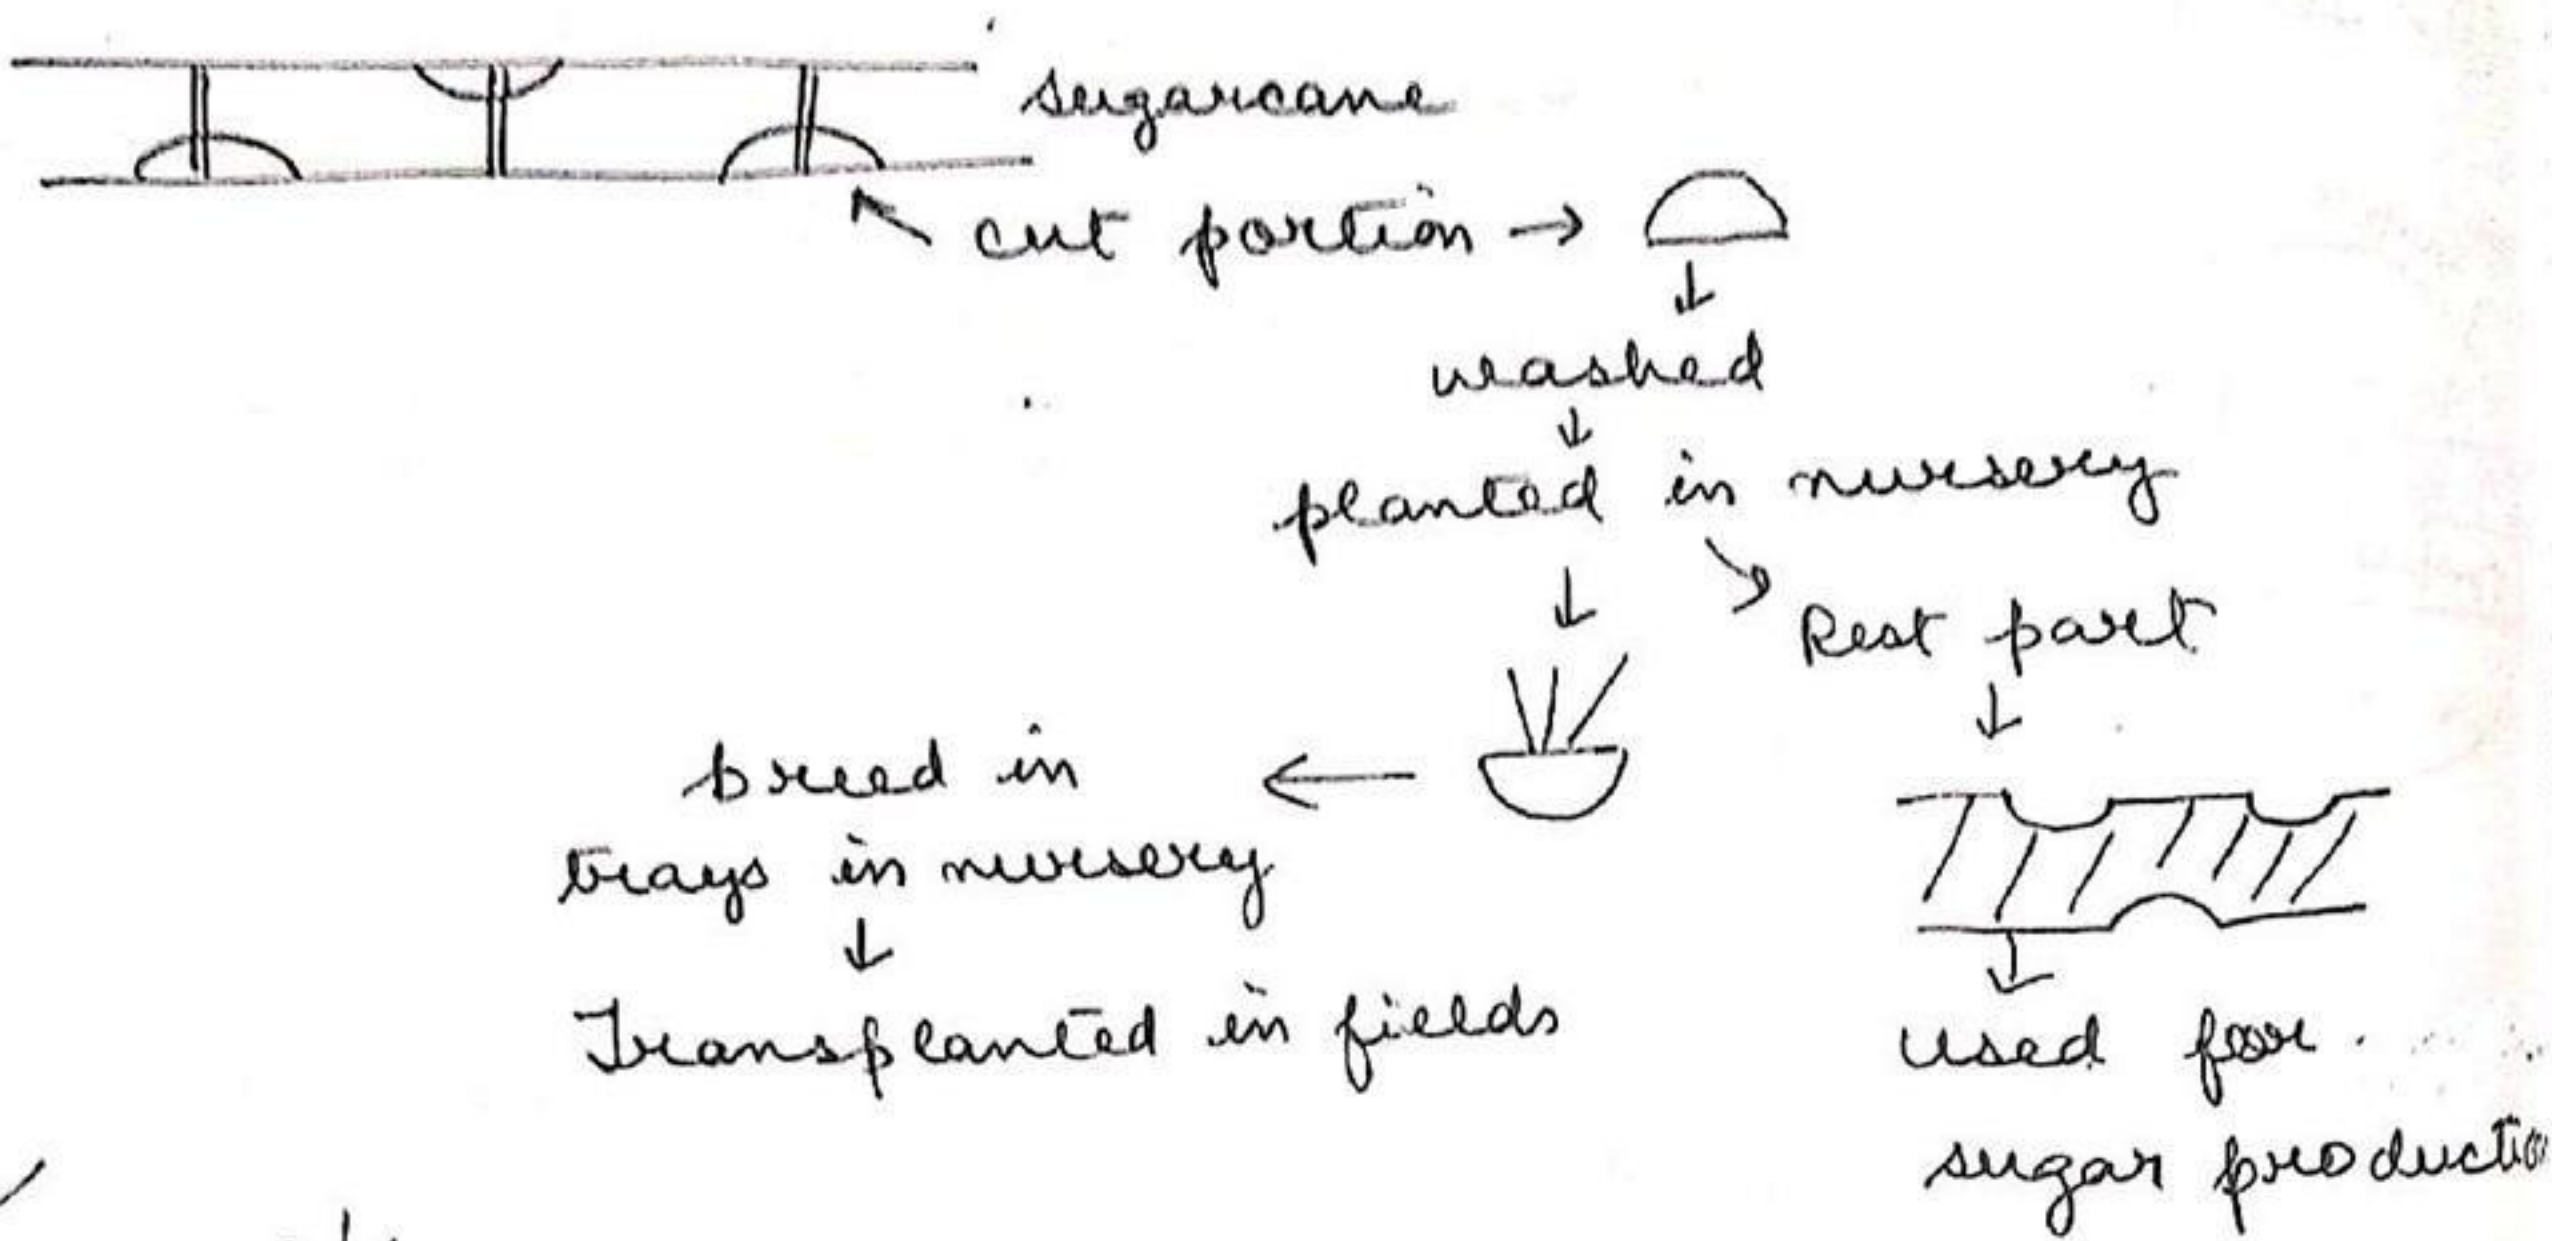 sugarcane
cut portion →
↓
washed
↓
planted in nursery
↓
Rest part
↓
breed in
trays in nursery
←
↓
Transplanted in fields
↓
Used for
sugar production